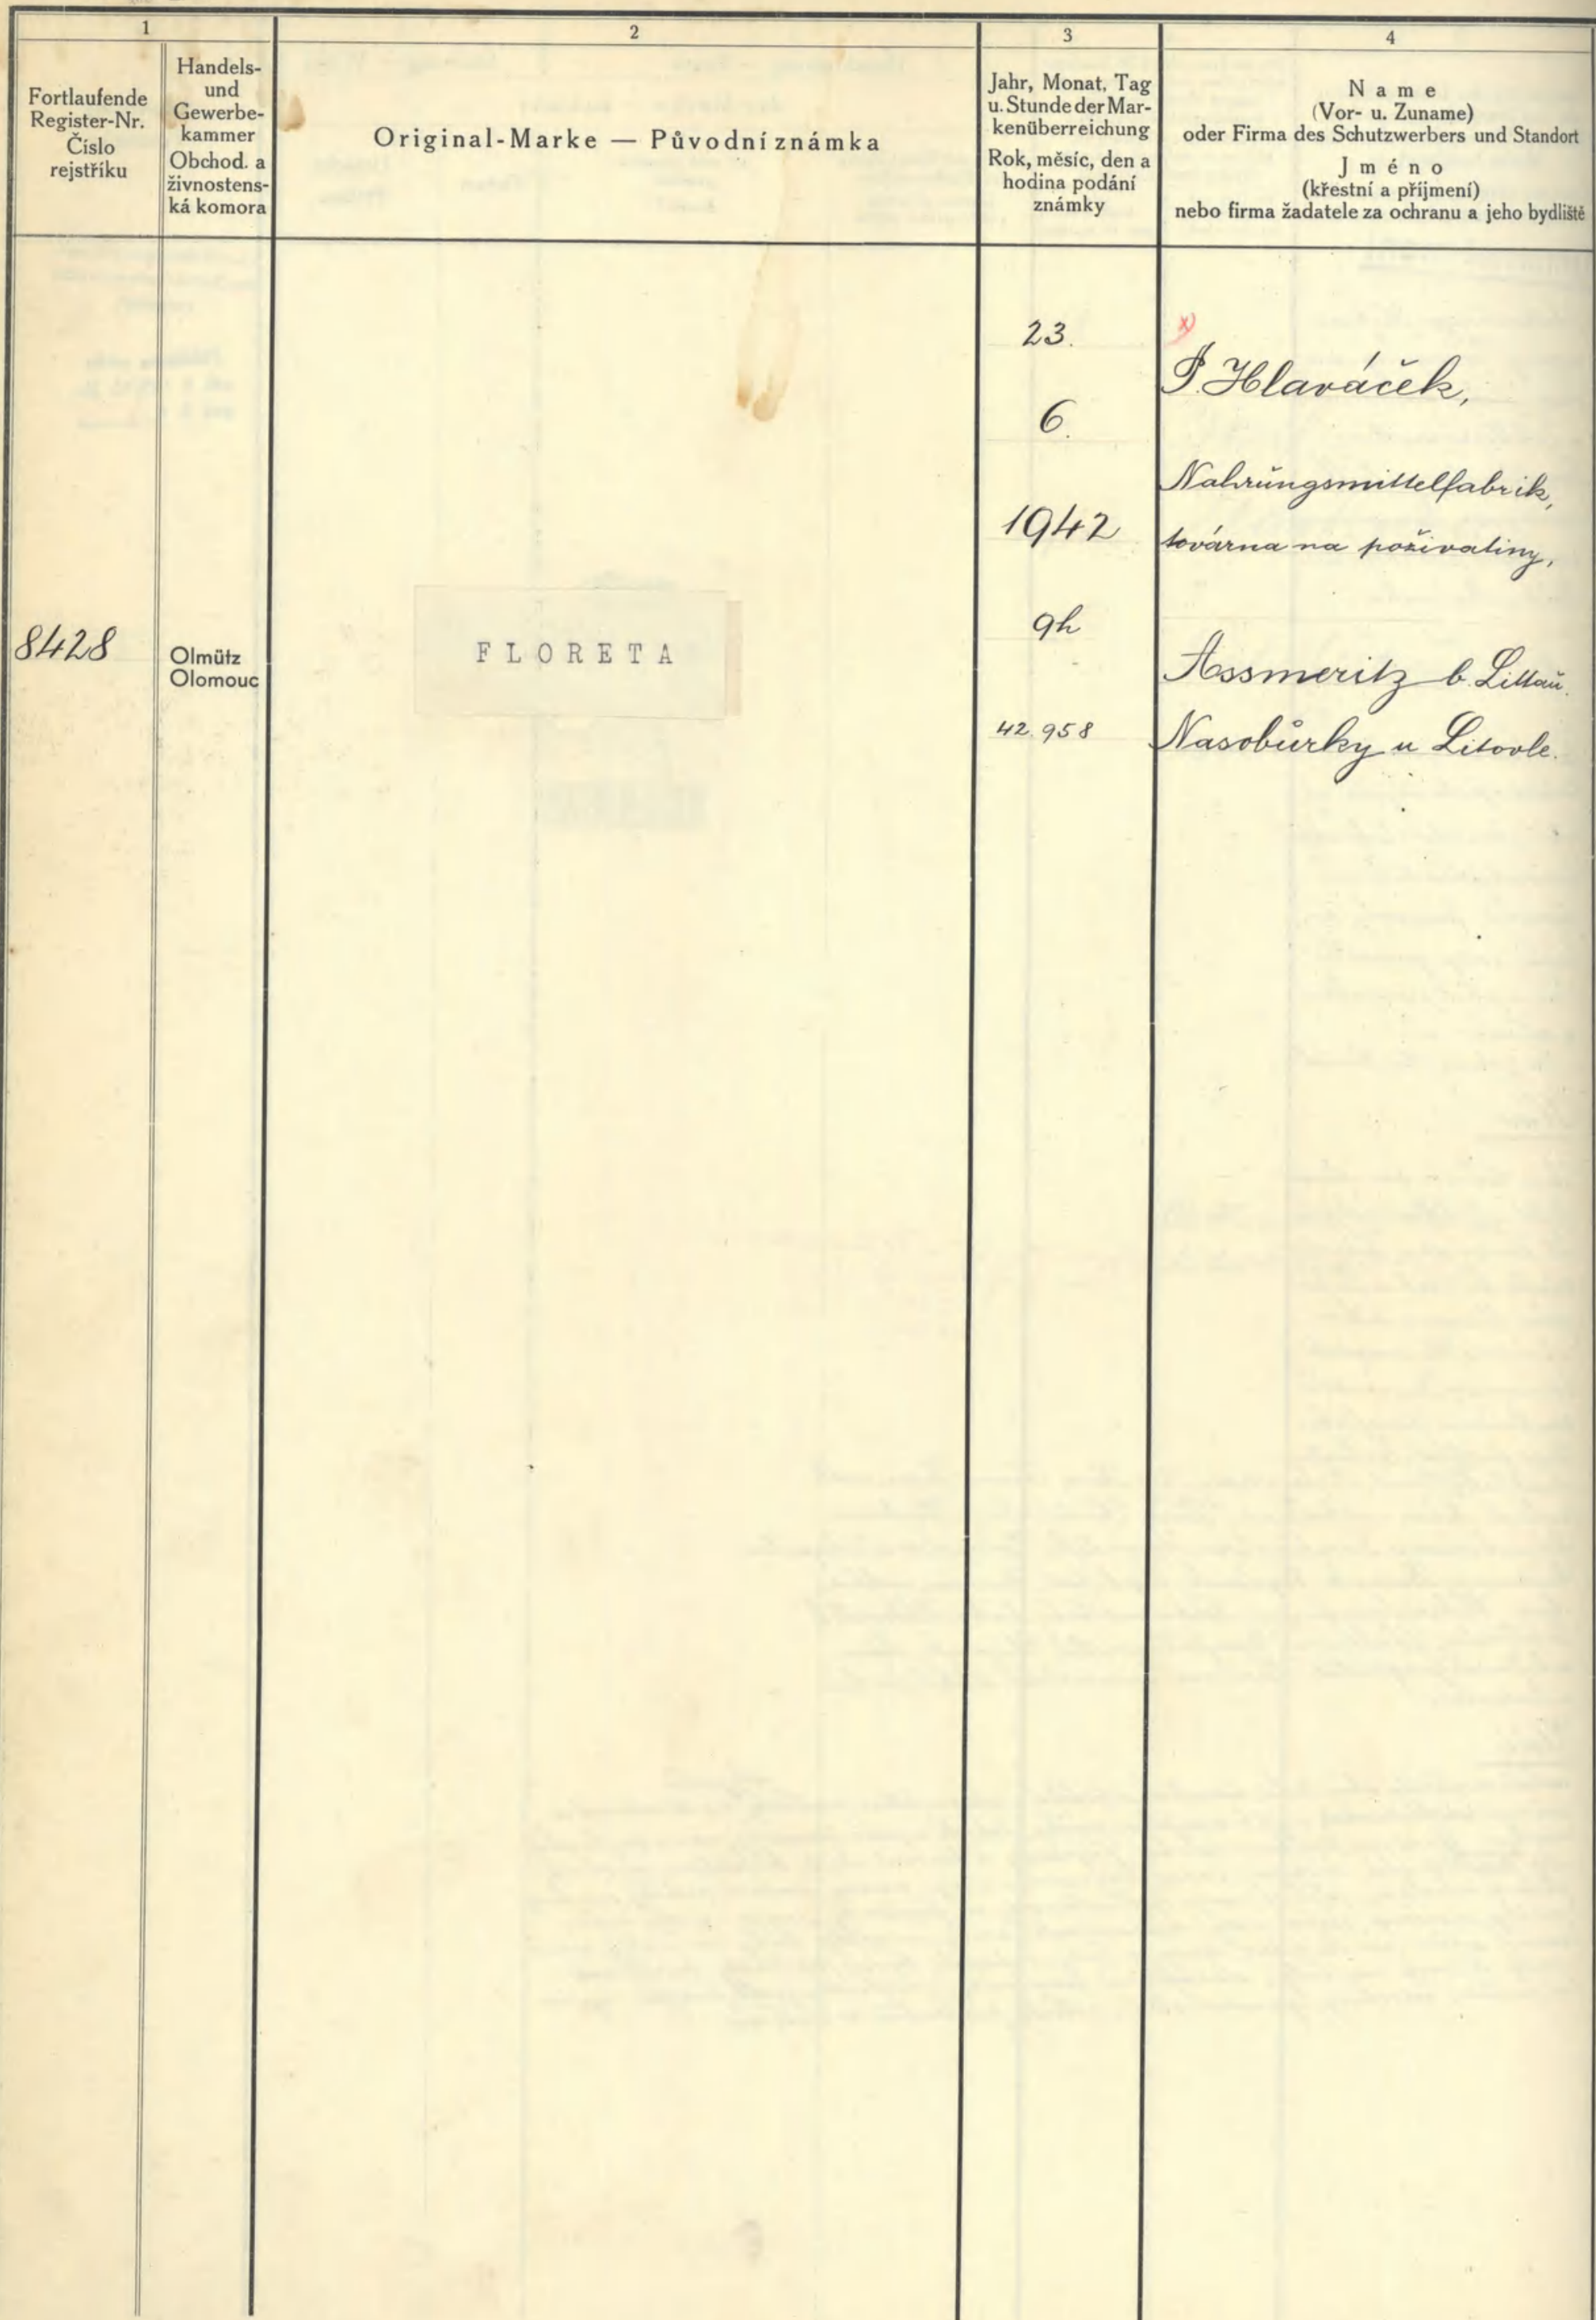 1
2
3
4
Fortlaufende
Register-Nr.
Číslo
rejstříku
Handels-
und
Gewerbe-
kammer
Obchod. a
živnostens-
ká komora
Original-Marke — Původní známka
Jahr, Monat, Tag
u. Stunde der Mar-
kenüberreichung
Rok, měsíc, den a
hodina podání
známky
Name
(Vor- u. Zuname)
oder Firma des Schutzwerbers und Standort
Jméno
(křestní a příjmení)
nebo firma žadatele za ochranu a jeho bydliště
8428
Olmütz
Olomouc
FLORETA
23.
6.
1942
9h
42.958
x)
Hlaváček,
Nahrŭngsmittelfabrik,
továrna na poživatiny,
Assmeritz b. Littaŭ.
Nasobůrky u Litovle.